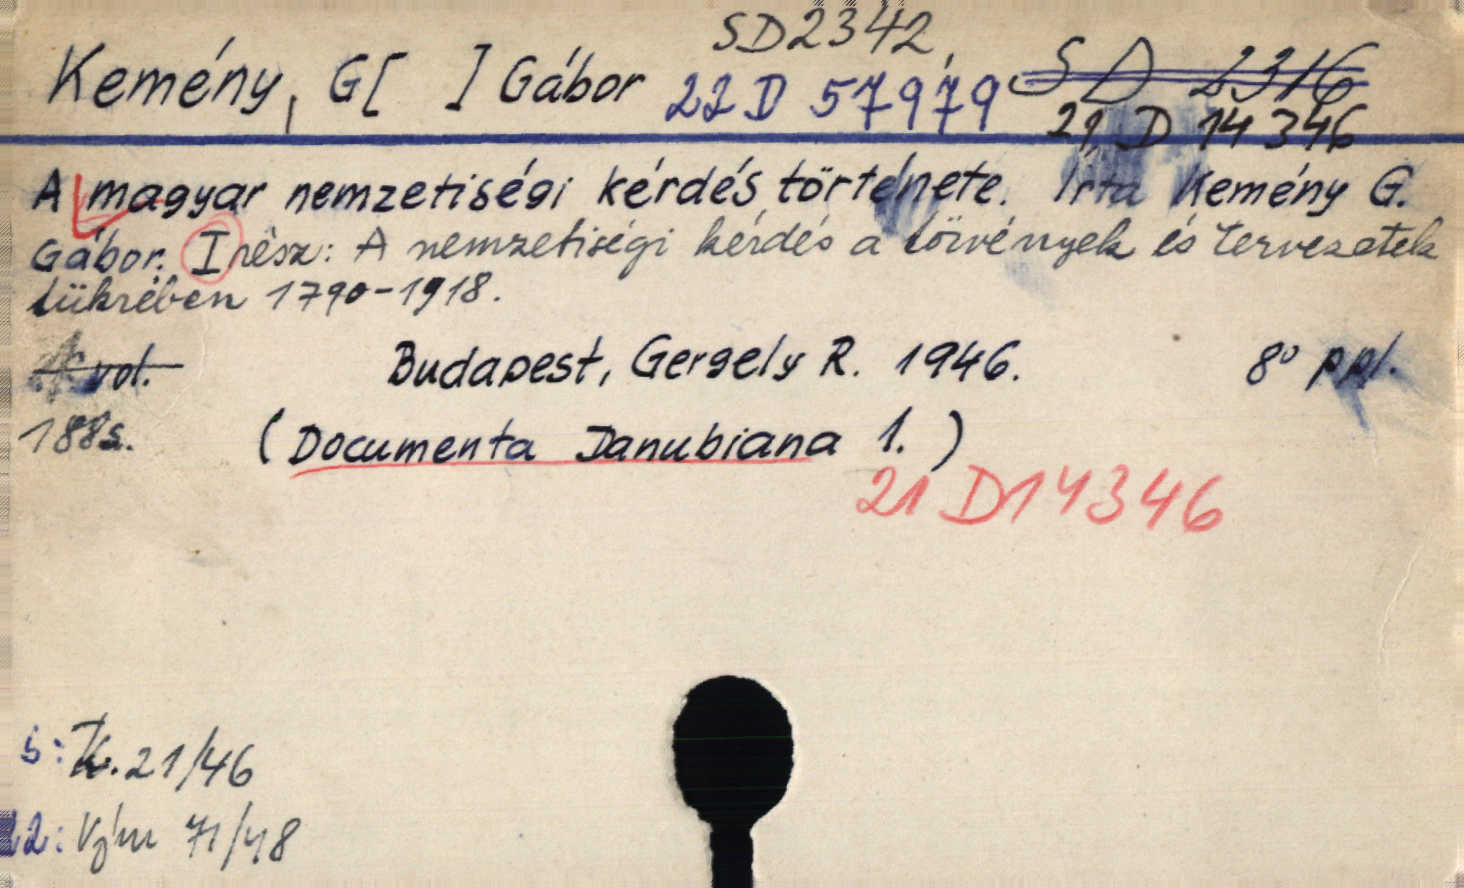 SD2342
Kemény, G[ ] Gábor 22 D 57979 SD 2316
21 D 14 346
A magyar nemzetiségi kérdés története. Irta Kemény G.
Gábor. I rész: A nemzetiségi kérdés a törvények és tervezetek
tükrében 1790-1918.
vol. Budapest, Gergely R. 1946. 8° ppl.
188s. (Documenta Danubiana 1.)
21 D14346
5: 21/46
22: 71/48